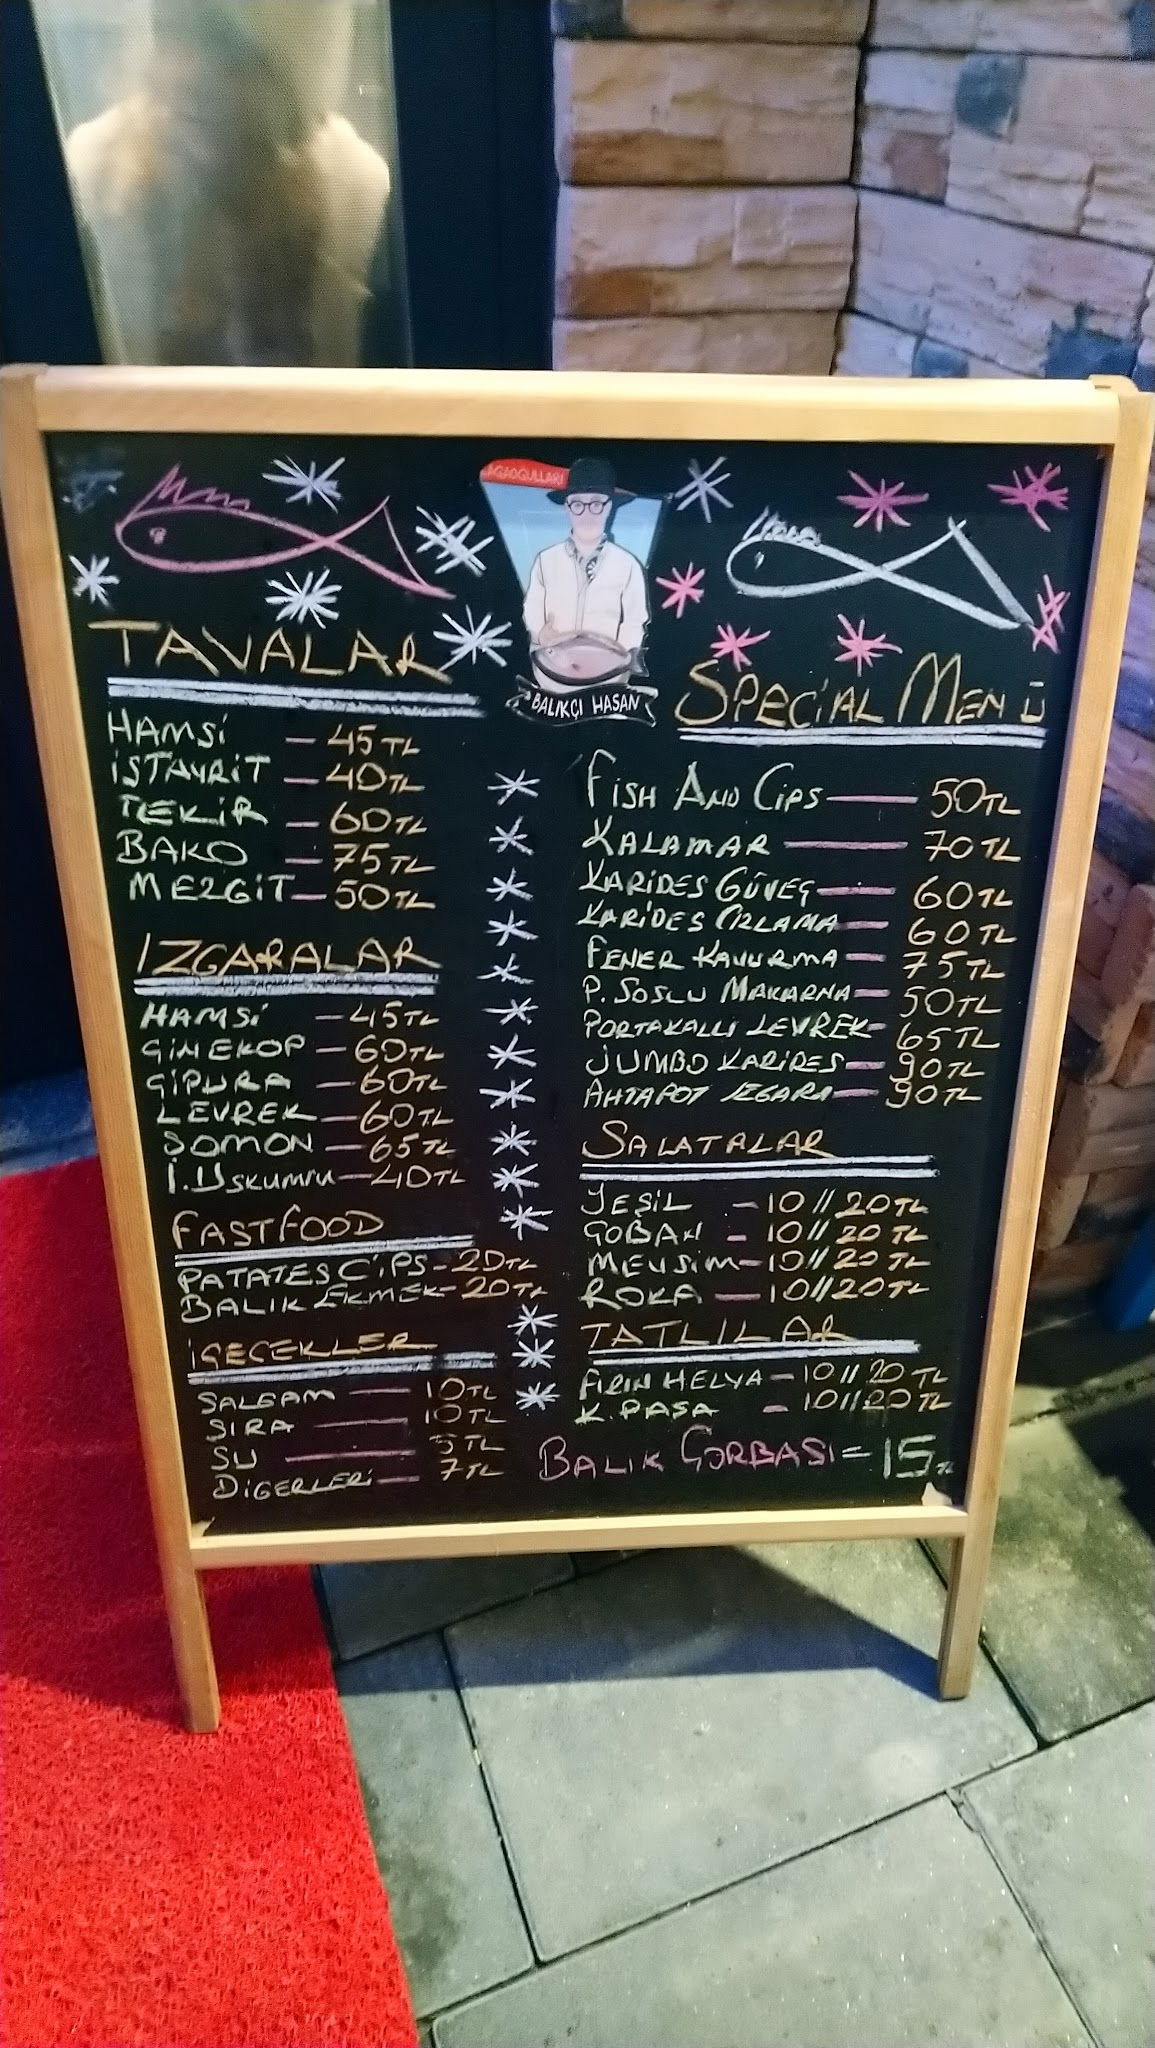 AĞAOĞULLARI
BALIKÇI HASAN
TAVALAR
HAMSİ — 45 TL
İSTAVRİT — 40 TL
TEKİR — 60 TL
BAKO — 75 TL
MEZGİT — 50 TL
IZGARALAR
HAMSİ — 45 TL
ÇİNEKOP — 60 TL
ÇİPURA — 60 TL
LEVREK — 60 TL
SOMON — 65 TL
İ. USKUMRU — 40 TL
FASTFOOD
PATATES CİPS - 20 TL
BALIK EKMEK - 20 TL
İÇECEKLER
ŞALGAM — 10 TL
ŞIRA — 10 TL
SU — 5 TL
DİĞERLERİ — 7 TL
SPECİAL MENÜ
FISH AND CİPS — 50 TL
KALAMAR — 70 TL
KARİDES GÜVEÇ — 60 TL
KARİDES CIZLAMA — 60 TL
FENER KAVURMA — 75 TL
P. SOSLU MAKARNA — 50 TL
PORTAKALLI LEVREK — 65 TL
JUMBO KARİDES — 90 TL
AHTAPOT IZGARA — 90 TL
SALATALAR
YEŞİL — 10 // 20 TL
ÇOBAN — 10 // 20 TL
MEVSİM — 10 // 20 TL
ROKA — 10 // 20 TL
TATLILAR
FIRIN HELVA — 10 // 20 TL
K. PAŞA — 10 // 20 TL
BALIK ÇORBASI = 15 TL